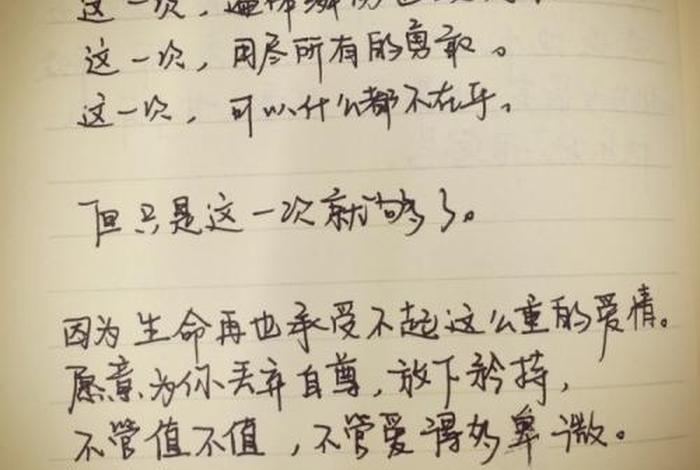 这一次，遍体鳞伤也
这一次，用尽所有的勇敢。
这一次，可以什么都不在乎。
但只是这一次就够了。
因为生命再也承受不起这么重的爱情。
愿意为你丢弃自尊，放下矜持，
不管值不值，不管爱得多卑微。